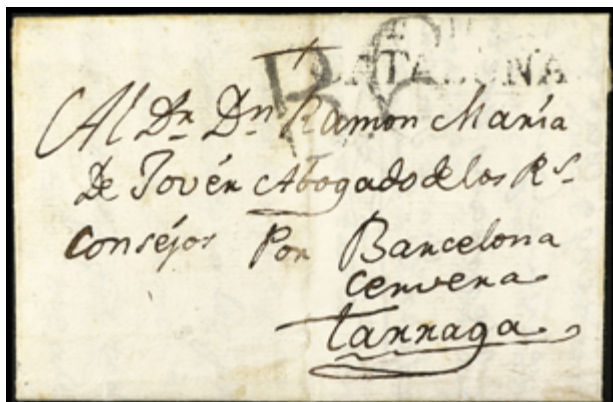 CATALUÑA
Al Dr. Dn. Ramon María
De Jovér Abogado de los Rs.
Conséjos Por Barcelona
cervera
Tarraga